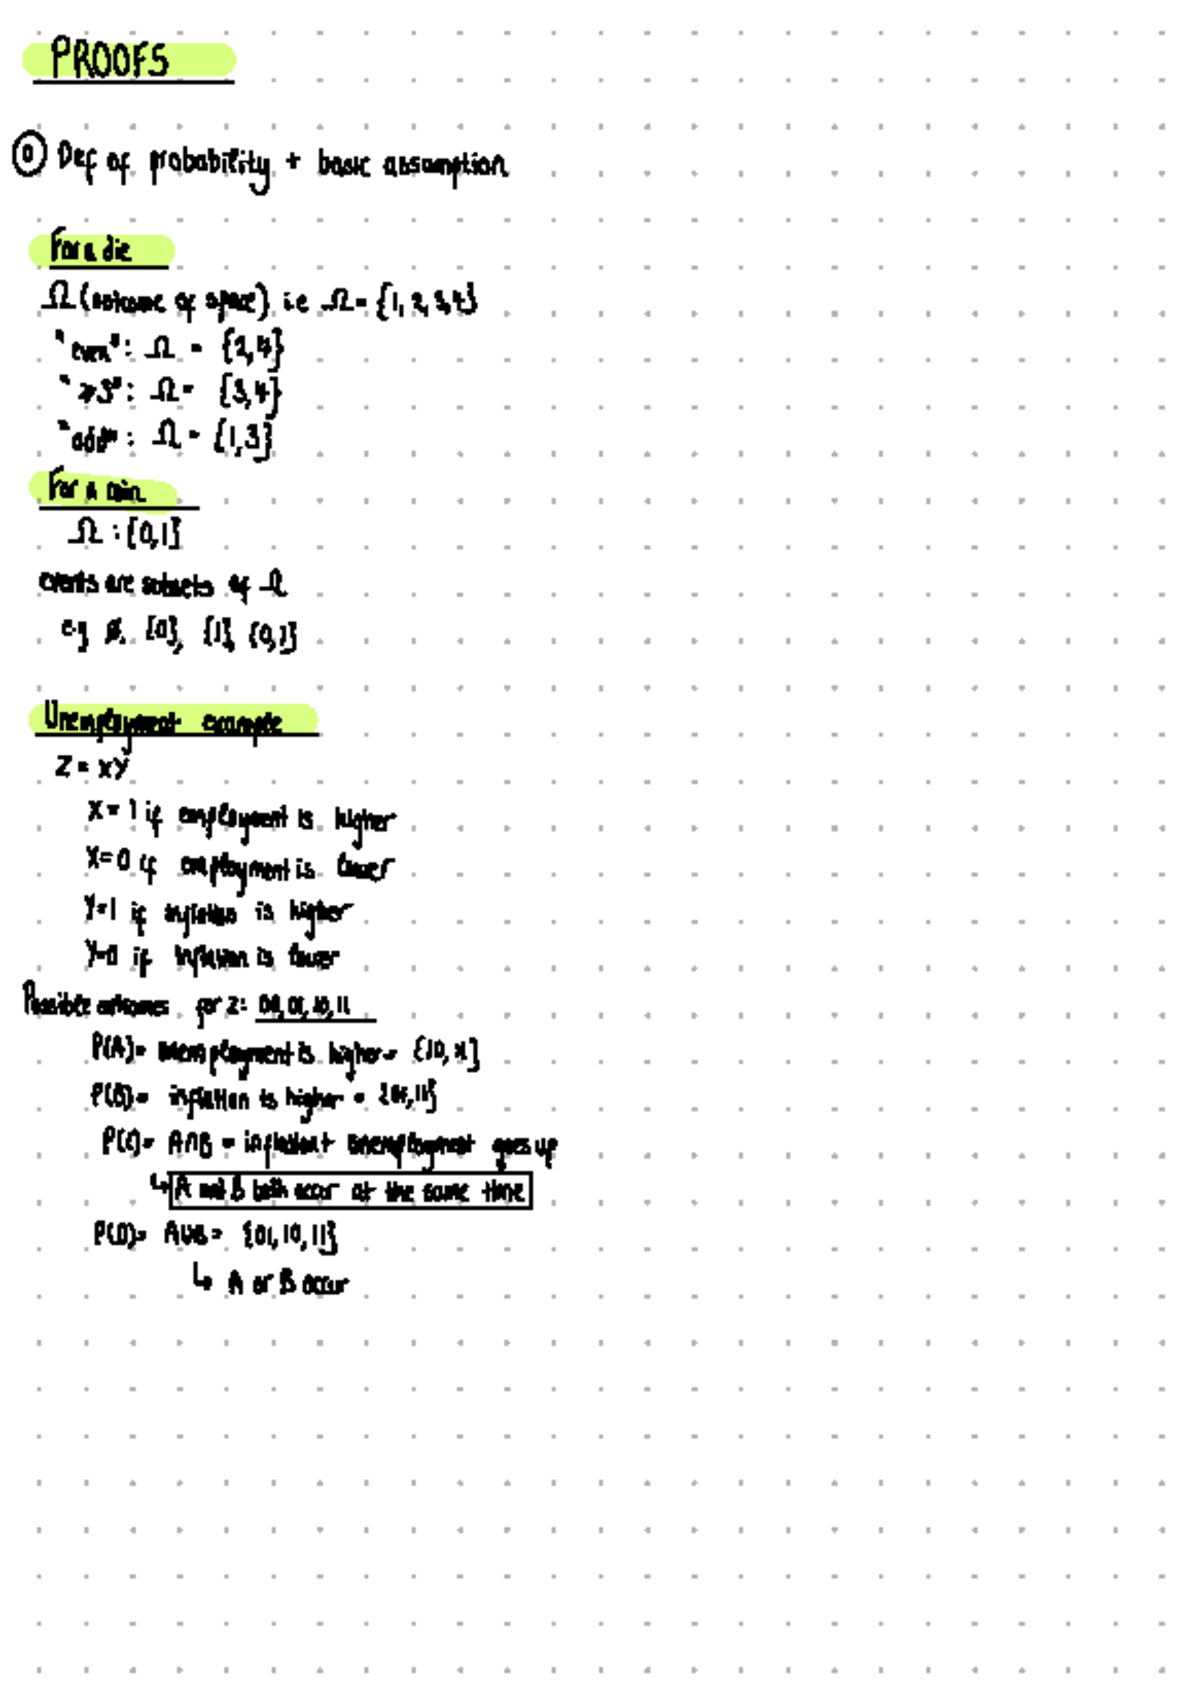 PROOFS
⓪ Def of probability + basic assumption
For a die
Ω (outcome of space) i.e Ω = {1, 2, 3, 4}
"even": Ω = {2,4}
"≥3": Ω = {3,4}
"odd": Ω = {1,3}
For a coin
Ω : {0,1}
events are subsets of Ω
e.g ∅, {0}, {1}, {0,1}
Unemployment example
Z = XY
X = 1 if employment is higher
X = 0 if employment is lower
Y=1 if inflation is higher
Y=0 if inflation is lower
Possible outcomes for Z: 00, 01, 10, 11
P(A)= unemployment is higher = {10, 11}
P(B)= inflation is higher = {01, 11}
P(C)= A∩B = inflation + unemployment goes up
↳ A and B both occur at the same time
P(D)= A∪B = {01, 10, 11}
↳ A or B occur